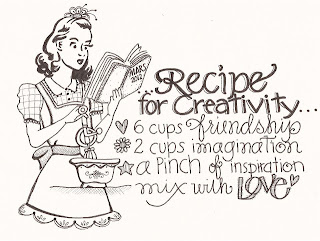 MARS
2012
Recipe
for Creativity...
6 cups friendship
2 cups imagination
a Pinch of inspiration
mix with LOVE